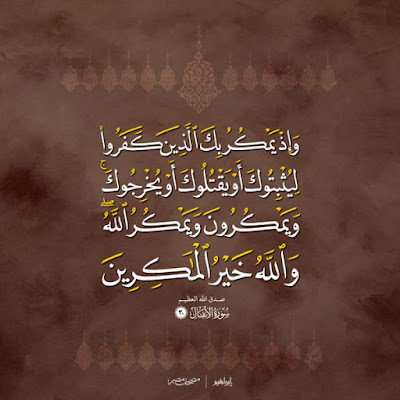 وَإِذۡ يَمۡكُرُ بِكَ ٱلَّذِينَ كَفَرُواْ
لِيُثۡبِتُوكَ أَوۡ يَقۡتُلُوكَ أَوۡ يُخۡرِجُوكَۚ
وَيَمۡكُرُونَ وَيَمۡكُرُ ٱللَّهُۖ
وَٱللَّهُ خَيۡرُ ٱلۡمَٰكِرِينَ
صدق الله العظيم
سُورَةُ الأَنفَالِ ٣٠
إبراهيم | مصحف مصر